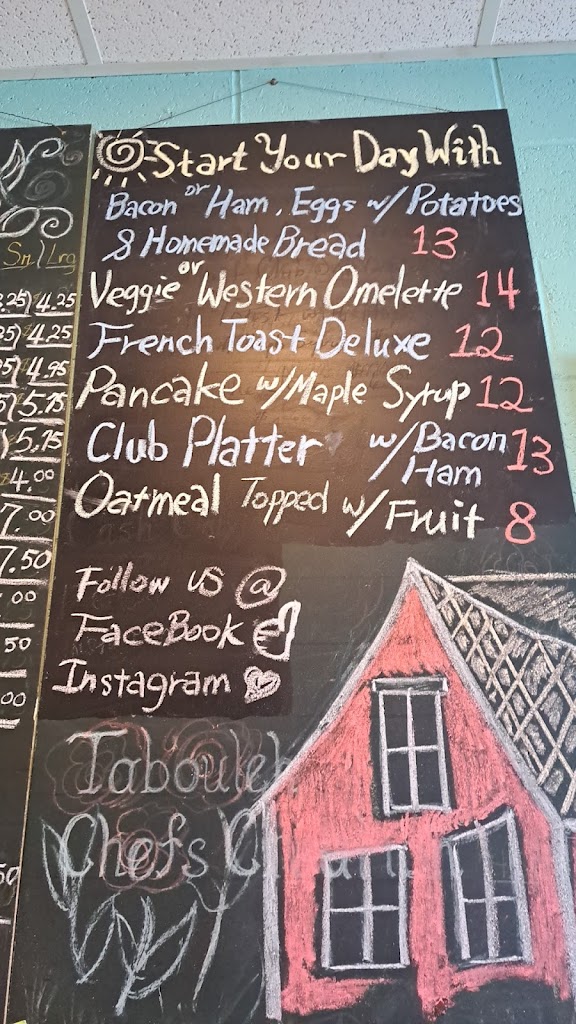 Start Your Day With
Bacon or Ham, Eggs w/ Potatoes
& Homemade Bread 13
Veggie or Western Omelette 14
French Toast Deluxe 12
Pancake w/ Maple Syrup 12
Club Platter w/ Bacon 13
Ham
Oatmeal Topped w/ Fruit 8
Follow us @
FaceBook
Instagram
Tabouleh
Chefs
Sm/Lrg
3.25/4.25
4.25
4.95
5.75
5.75
4.00
7.00
7.50
.00
50
00
50